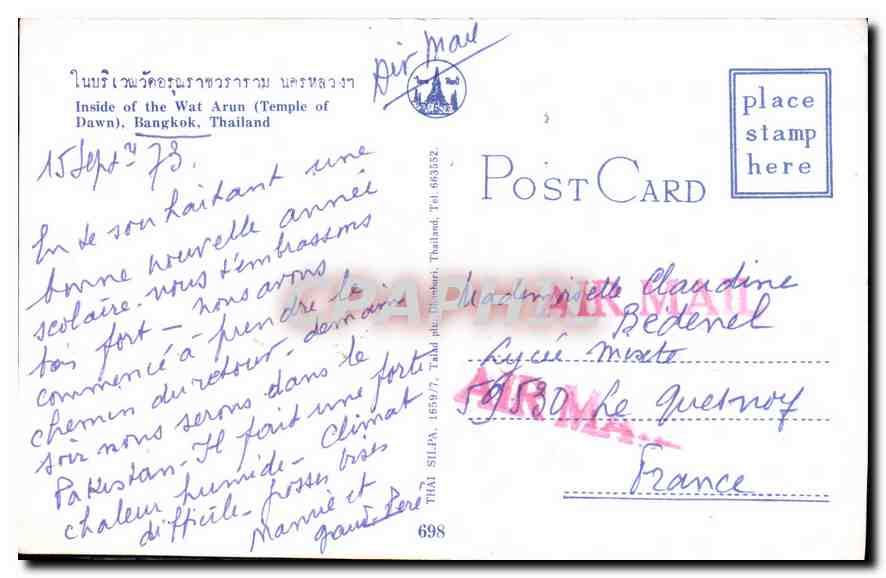 ในบริเวณวัดอรุณราชวราราม นครหลวงฯ
Inside of the Wat Arun (Temple of
Dawn), Bangkok, Thailand
Air Mail
15 Sept 73.
En te souhaitant une
bonne nouvelle année
scolaire. nous t'embrassons
très fort - nous avons
commencé à prendre le
chemin du retour - demain
soir nous serons dans le
Pakistan - Il fait une forte
chaleur humide - Climat
difficile - grosses bises
Mamie et
grand Père
THAI SILPA, 1659/7, Taksin Dhonburi, Thailand, Tel. 663552.
698
POST CARD
place
stamp
here
AIR MAIL
Mademoiselle Claudine
Bedenel
Lycée mixte
59530 Le Quesnoy
France
AIR MA
CPAPHIL